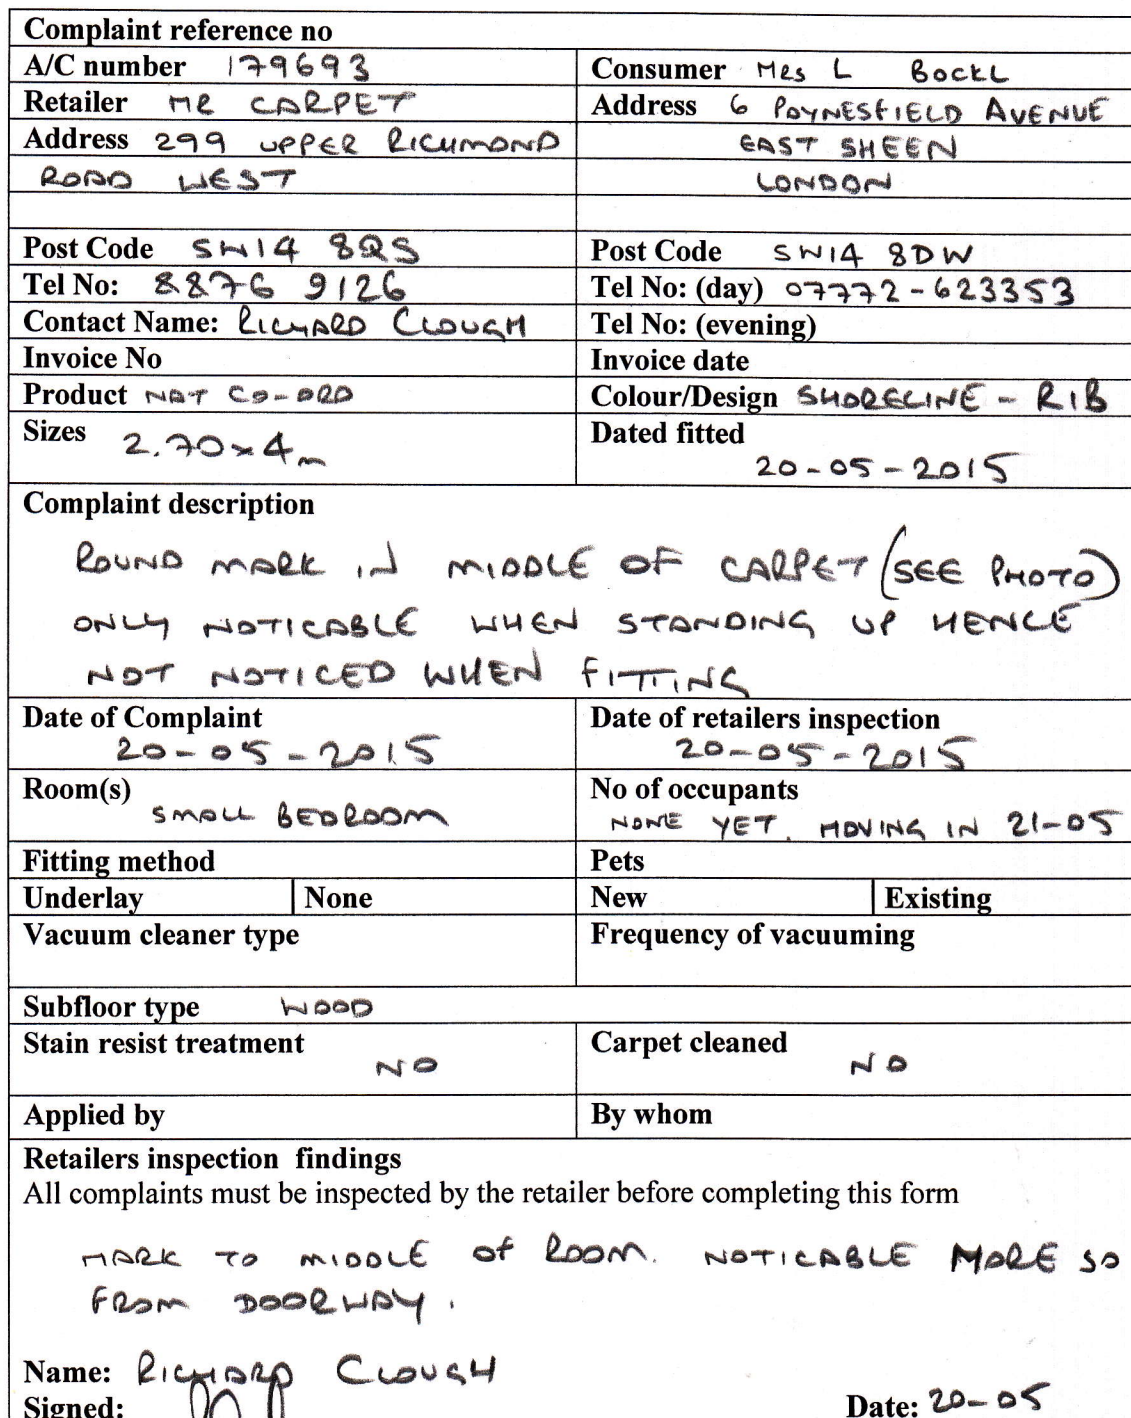 Complaint reference no
A/C number 179693
Consumer Mrs L BOCKL
Retailer MR CARPET
Address 6 PAYNESFIELD AVENUE
Address 299 UPPER RICHMOND
EAST SHEEN
ROAD WEST
LONDON
Post Code SW14 8QS
Post Code SW14 8DW
Tel No: 8876 9126
Tel No: (day) 07772-623353
Contact Name: RICHARD CLOUGH
Tel No: (evening)
Invoice No
Invoice date
Product NAT CO-ORD
Colour/Design SHORELINE - RIB
Sizes 2.70 x 4m
Dated fitted
20-05-2015
Complaint description
ROUND MARK IN MIDDLE OF CARPET (SEE PHOTO)
ONLY NOTICABLE WHEN STANDING UP HENCE
NOT NOTICED WHEN FITTING
Date of Complaint
20-05-2015
Date of retailers inspection
20-05-2015
Room(s)
SMALL BEDROOM
No of occupants
NONE YET. MOVING IN 21-05
Fitting method
Pets
Underlay None
New Existing
Vacuum cleaner type
Frequency of vacuuming
Subfloor type WOOD
Stain resist treatment
NO
Carpet cleaned
NO
Applied by
By whom
Retailers inspection findings
All complaints must be inspected by the retailer before completing this form
MARK TO MIDDLE OF ROOM. NOTICABLE MORE SO
FROM DOORWAY.
Name: RICHARD CLOUGH
Signed:
Date: 20-05